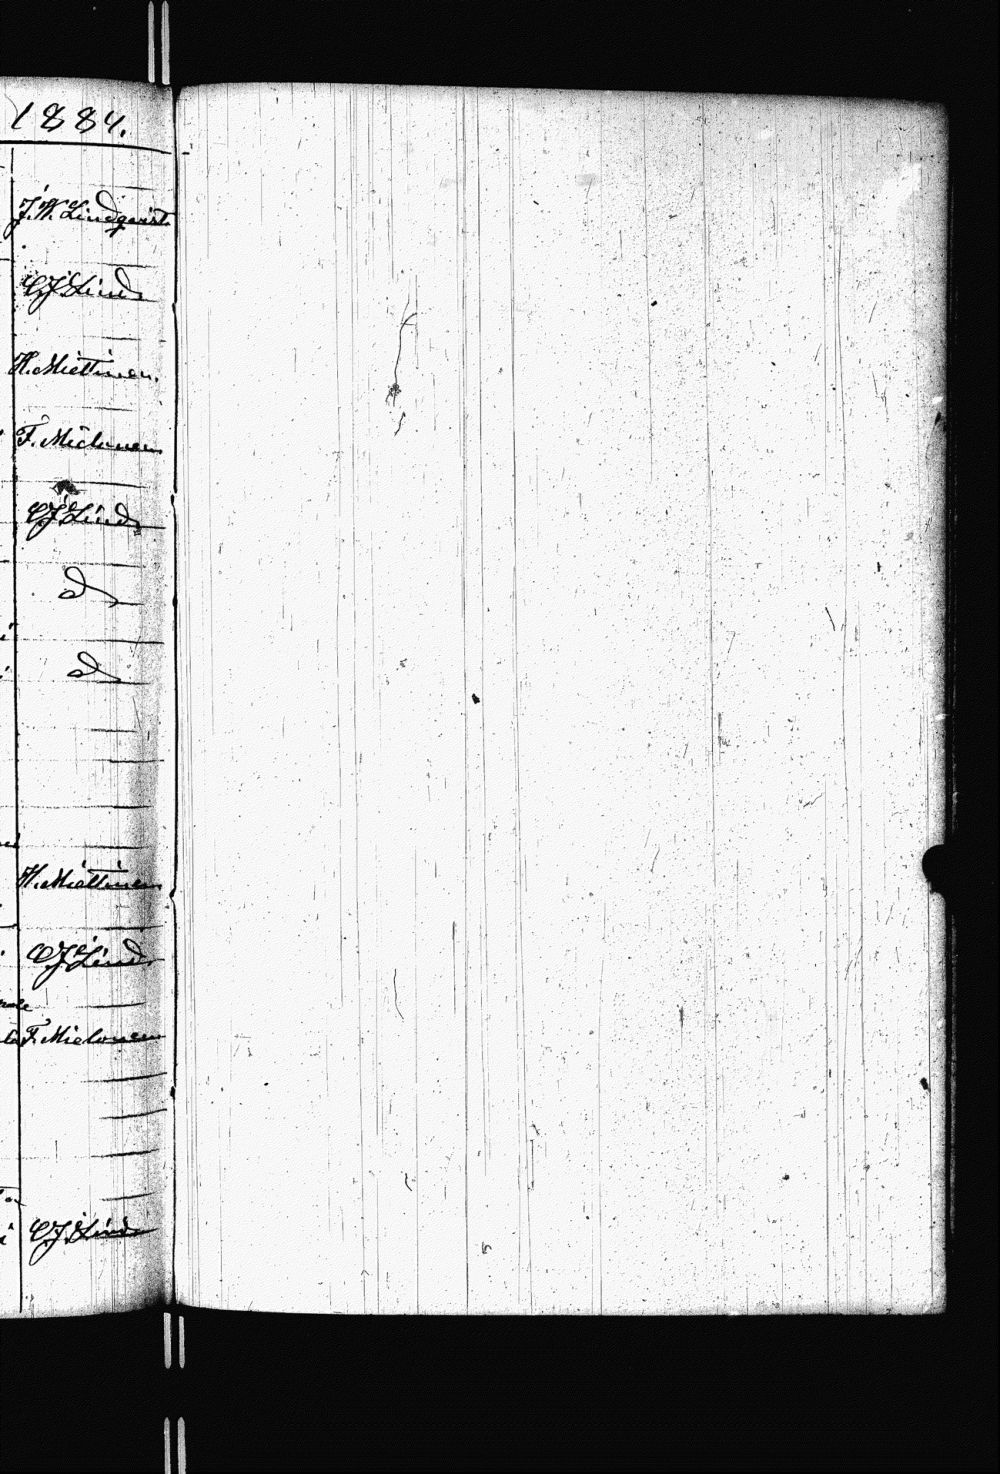 1884.
J. W. Lindqvist.
C J Lind
H. Miettinen.
F. Mielonen
C J Lind
d
d
H. Miettinen
C J Lind.
F. Mielonen
C J Lind